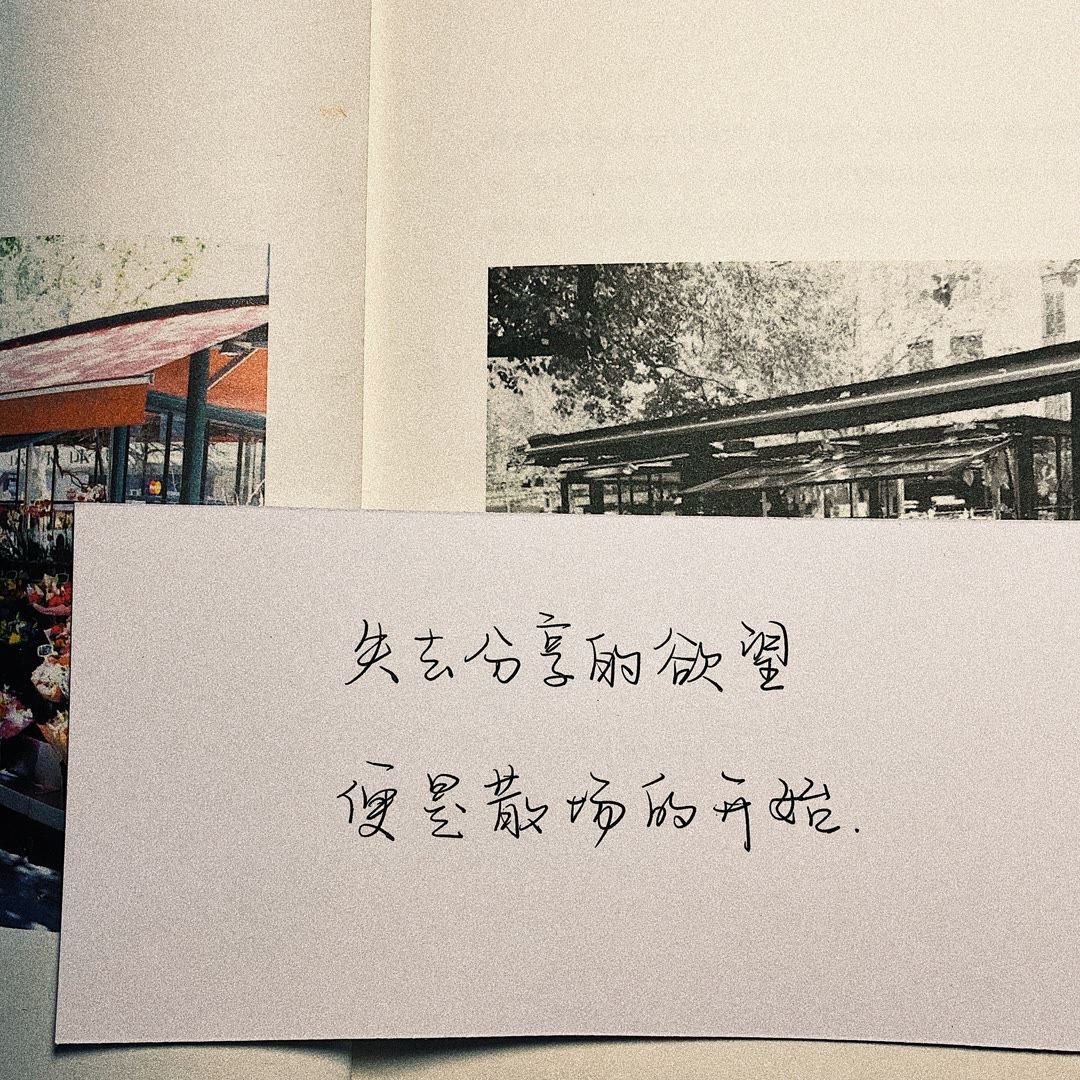 失去分享的欲望
便是散场的开始.